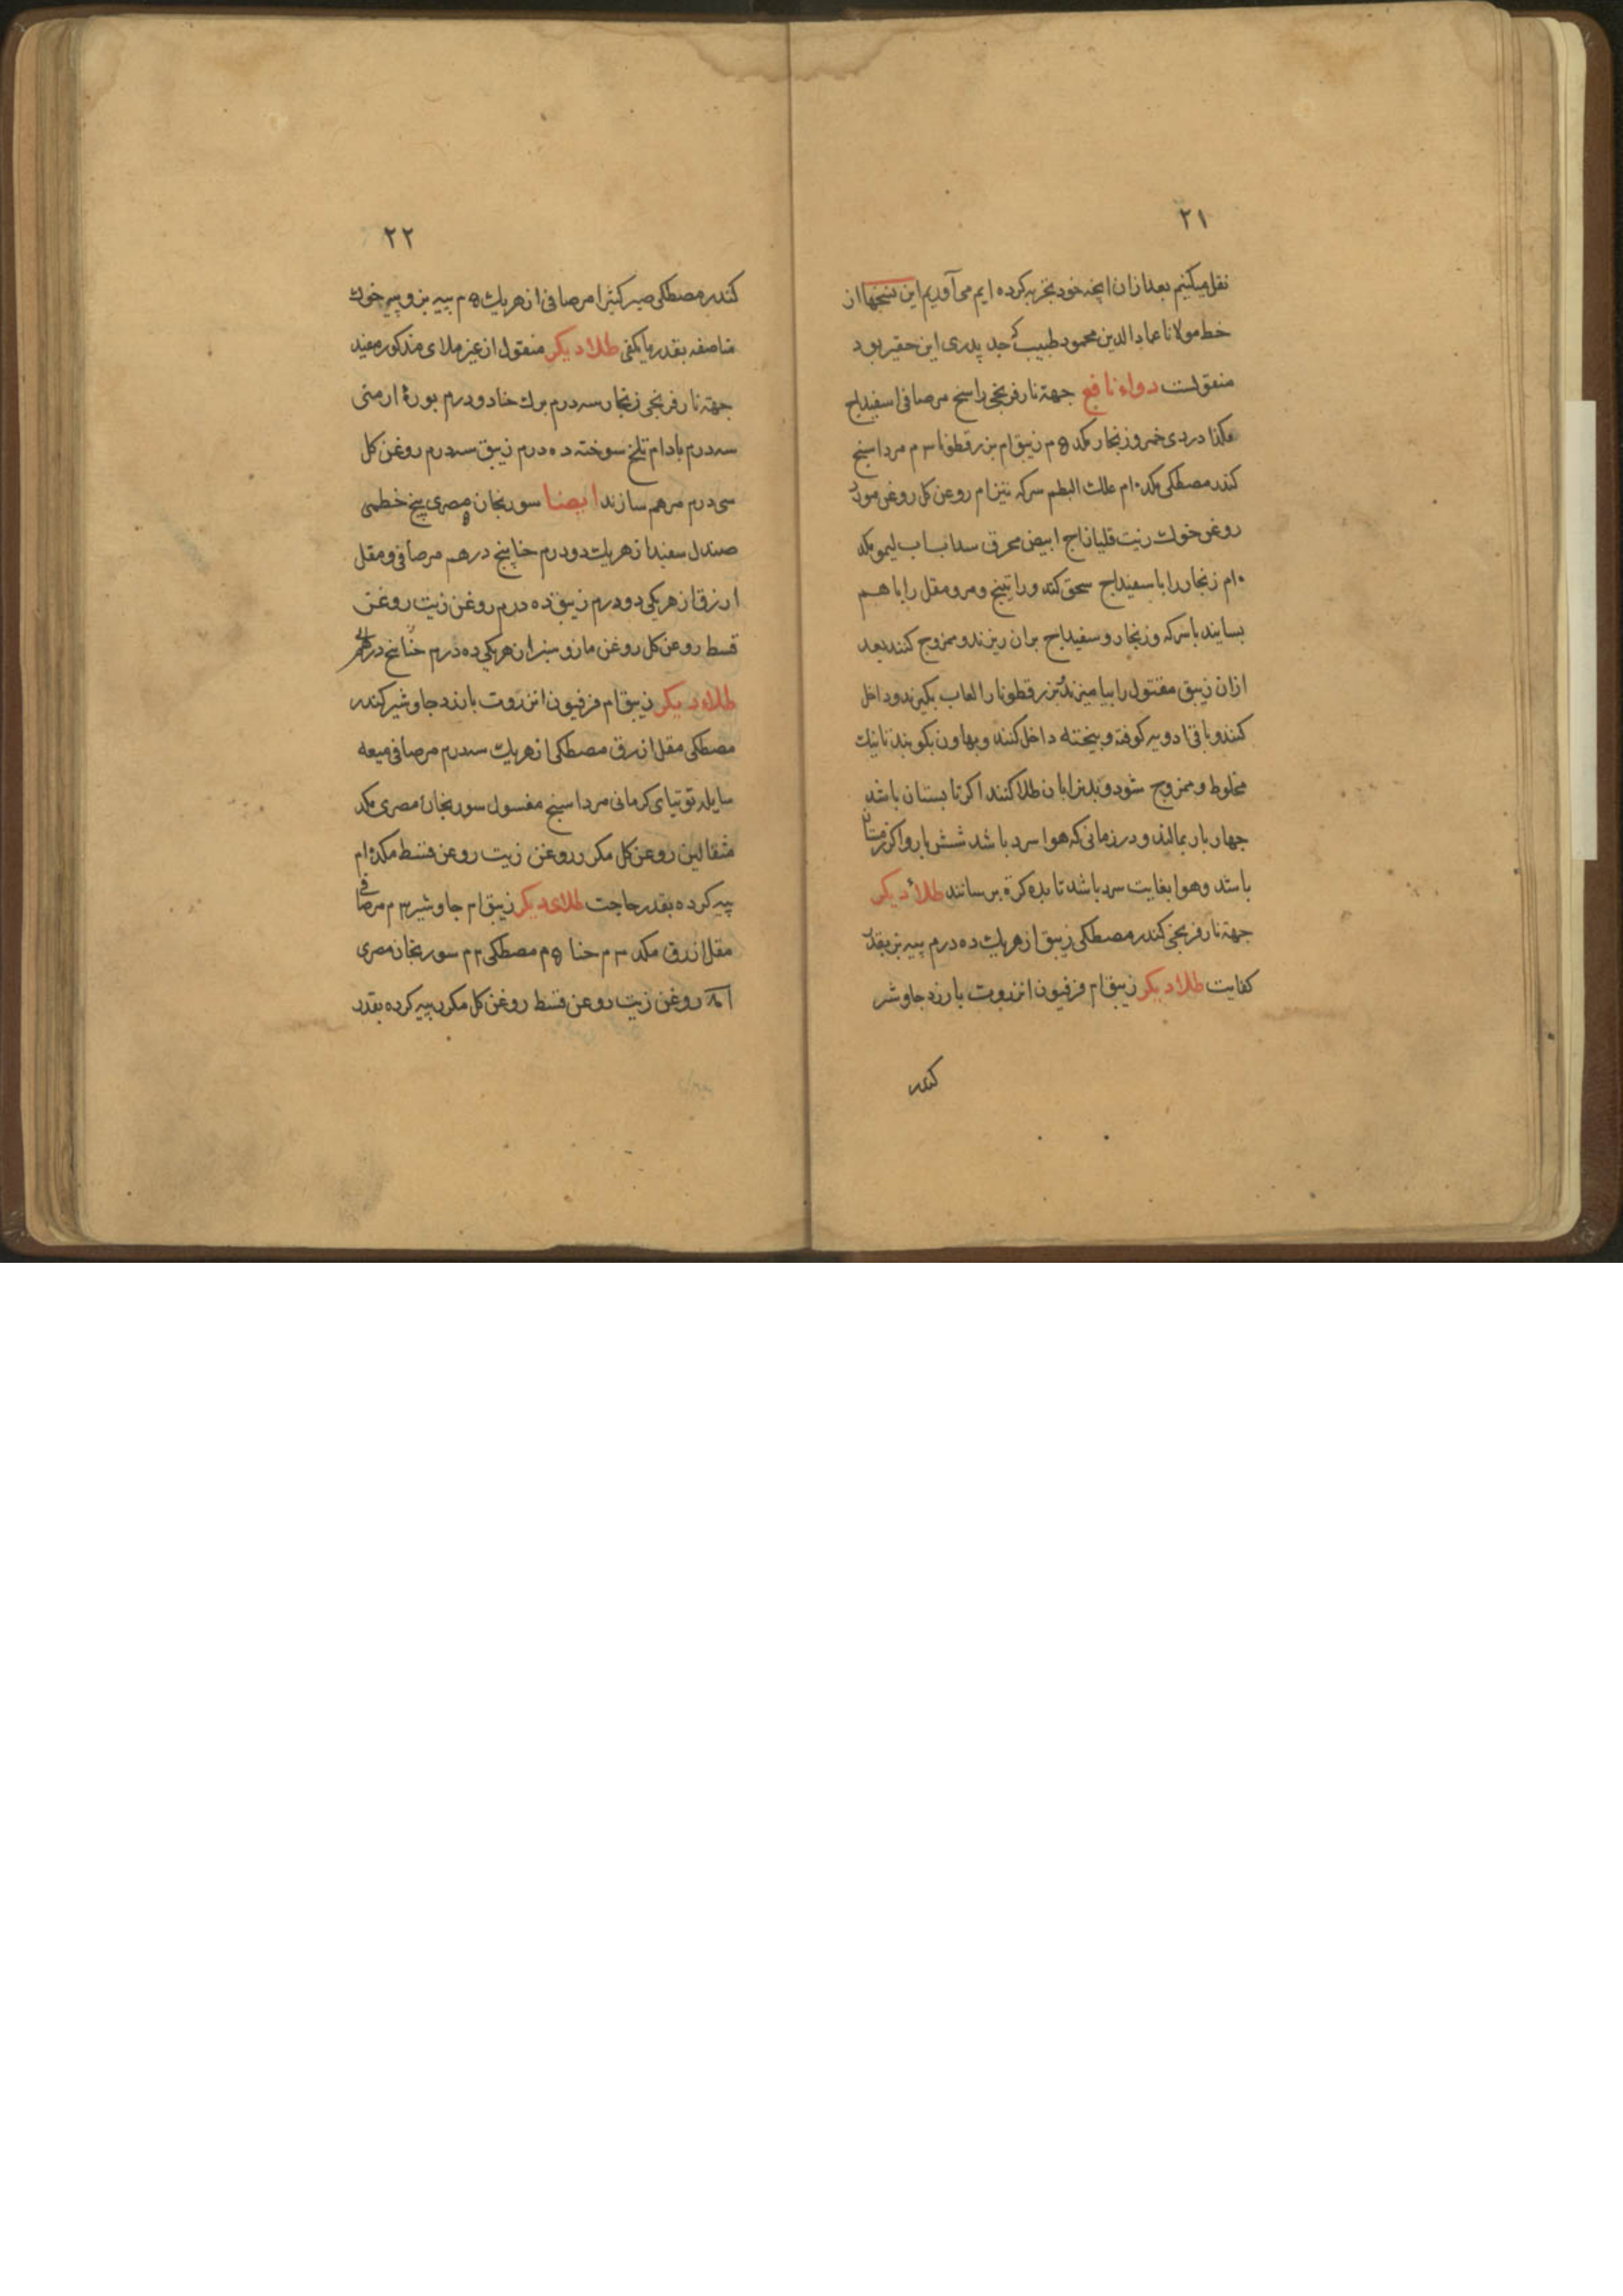 ۲۱
نقل میکنیم بعد ازان انچه خود تجربه کرده ایم می آوریم این نسخها از
خط مولانا عماد الدین محمود طبیب که جد پدری این حقیر بود
منقولست دواء نافع جهة نار فرنجی راسخ مرصافی اسفیداج
دردی خمر وزنجار مکد ۵م زیبق ۱م بزرقطونا ۳م مرداسنج
کندر مصطکی مکد ۱۰م علک البطم سرکه روغن کل روغن مورد
روغن خوک زیت ابیض محرق سداب اب لیمو مکد
۱۰م زنجار را با سفیداج سحق کند وراتینج ومرو مقل را باهم
بسایند با سرکه وزنجار وسفیداج بران ریزند وممزوج کنند بعد
ازان زیبق مقتول را بیامیزند بزرقطونا را لعاب بکیرند وداخل
کنند وباقی ادویه کوفته وبیخته داخل کنند وبهاون بکوبند تا نیک
مخلوط وممزوج شود وبدن را بان طلا کنند اکر تابستان باشد
چهار بار بمالند ودر زمانی که هوا سرد باشد شش بار واکر زمستان
باشد وهوا بغایت سرد باشد تا بده کرة برسانند طلاء دیکر
جهة نار فرنجی کندر مصطکی زیبق از هریک ده درم پیه بز بقدر
کفایت طلاء دیکر زیبق ۱م فرفیون انزروت بارزد جاوشیر
کندر
۲۲
کندر مصطکی صبر کتیرا مرصافی از هریک ۵م پیه بز وپیه خوک
مناصفه بقدر ما یکفی طلاء دیکر منقول از غیر ملای مذکور مفید
جهة نار فرنجی زنجار سه درم برک حنا دو درم بورهٔ ارمنی
سه درم بادام تلخ سوخته ده درم زیبق سه درم روغن کل
سی درم مرهم سازند ایضا سورنجان مصری بیخ خطمی
صندل سفید از هریک دو درم حنا پنج درهم مرصافی ومقل
ازرق از هریکی دو درم زیبق ده درم روغن زیت روغن
قسط روغن کل روغن مازو سبز از هریکی ده درم حنا پنج درهم
طلاء دیکر زیبق ۱م فرفیون انزروت بارزد جاوشیر کندر
مصطکی مقل ازرق مصطکی از هریک سه درم مرصافی میعه
سایله توتیای کرمانی مرداسنج مغسول سورنجان مصری مکد
مثقالین روغن کل مکرر روغن زیت روغن قسط مکد ۱۰م
پیه کرده بقدر حاجت طلای دیکر زیبق ۱م جاوشیر ۳م مرصافی
مقل ازرق مکد ۳م حنا ۵م مصطکی ۳م سورنجان مصری
روغن زیت روغن قسط روغن کل مکرر پیه کرده بقدر